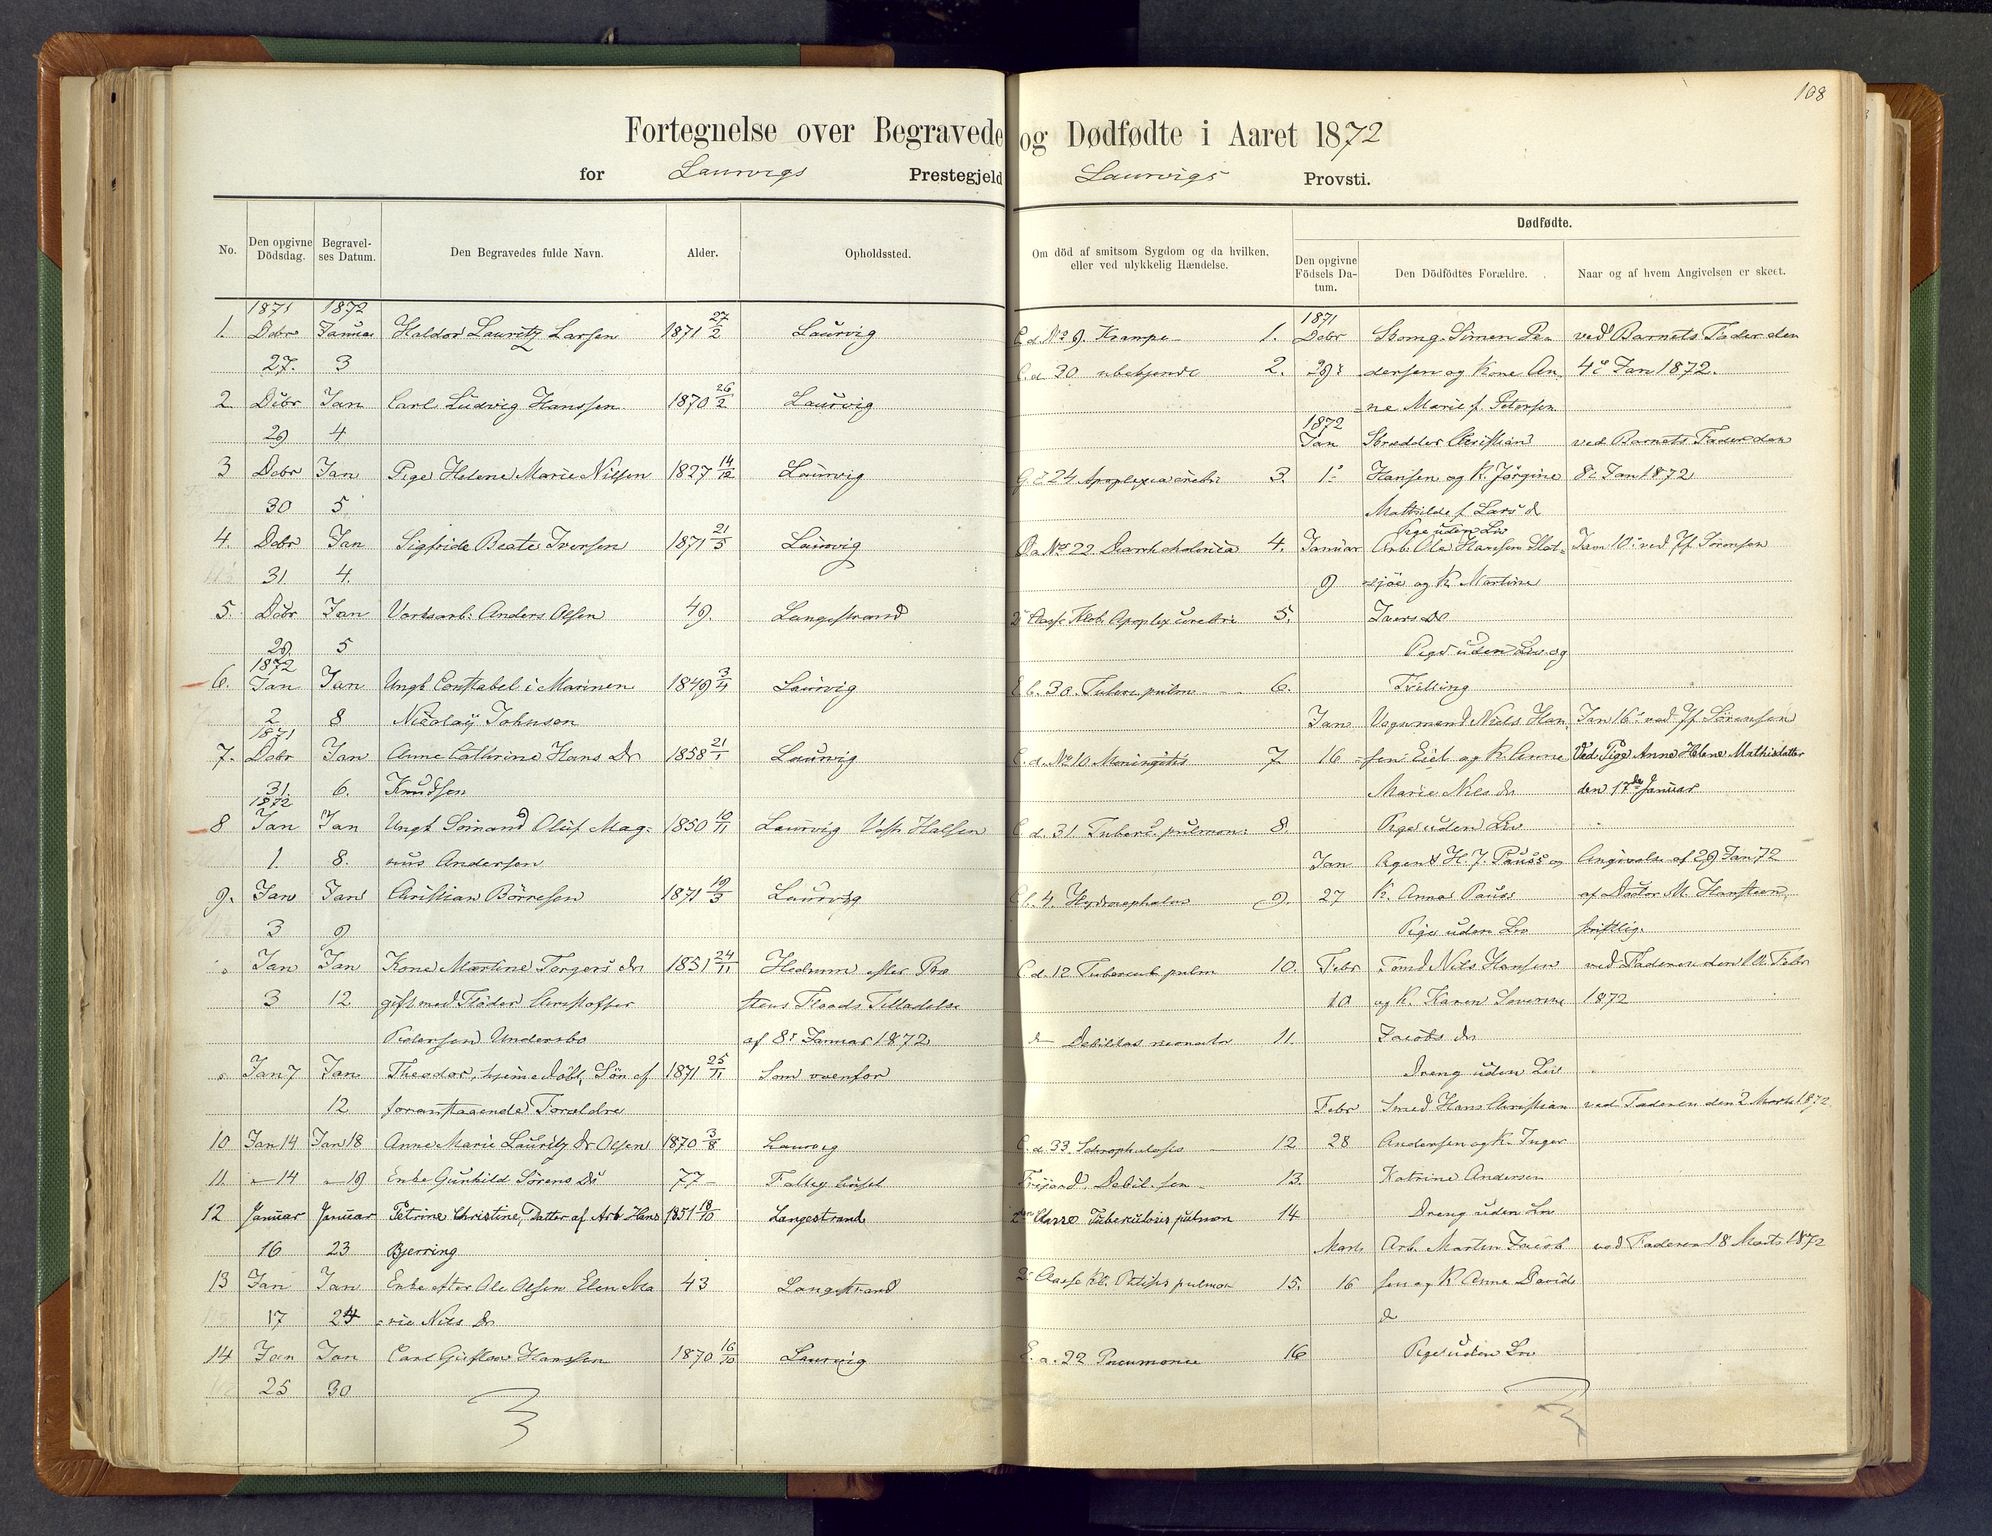 108
Fortegnelse over Begravede og Dødfødte i Aaret 1872
for Laurvigs Prestegjeld Laurvigs Provsti.
Dødfødte.
No. Den opgivne Dödsdag. Begravelses Datum. Den Begravedes fulde Navn. Alder. Opholdssted. Om död af smitsom Sygdom og da hvilken, eller ved ulykkelig Hændelse. Den opgivne Födsels Datum. Den Dödfödtes Forældre. Naar og af hvem Angivelsen er skeet.
1871 1872 1871
1. Debr Januar Haldor Lauritz Larsen 1871 27/2 Laurvig C. d. No 9. Krampe 1. Debr Simen Pe- ved Barnets Fader den
27. 3 C. d 30 ubekjendt 2. 29 dersen og Kone An- 4 Jan 1872.
2 Debr Jan Carl Ludvig Hanssen 1870 26/2 Laurvig ne Marie f. Petersen
29 4 1872 Jan Skrædder Christian ved Barnets Fader den
3 Debr Jan Pige Helene Marie Nilsen 1827 14/12 Laurvig 24 Apoplexia cerebri 3. 1 Hansen og K. Jørgine 8 Jan 1872
30 5 Mathilde f. Lars d
Pige uden Liv
4. Debr Jan Sigfride Beate Iversen 1871 21/5 Laurvig No 22 4. Januar Arb. Ole Hansen Jan 10 ved Jf Sörensen
31 4. 9 og K Martine
5. Debr Jan Anders Olsen 49. Langestrand Apoplex cerebri 5. Ivers D
29. 5 Pige uden Liv og
1872
6. Jan Jan Ungk Constabel i Marinen 1849 3/4 Laurvig C. b. 30. Tuberc. pulm 6. Tvilling
2 8 Nicolay Johnsen Jan Niels Han Jan 16 ved Jf Sörensen
1871
7. Debr Jan Anne Cathrine Hans Dr 1858 21/1 Laurvig C. d. No 10 Meningitis 7 16 sen og K. Anne Ved Pige Anne Helene Mathisdatter
31. 6. Knudsen Marie Nils dr den 17de Januar
1872
8 Jan Jan Ungk Sömand Oluf Mag- 1850 10/11 Laurvig Halsen C. d. 31. Tuberc. pulmon. 8. Pige uden Liv
1. 8. nus Andersen Jan Agent H. J. Pauss og Angivelse af 29 Jan 72
9. Jan Jan Christian Börresen 1871 19/3 Laurvig C. b. 4. Hydrocephalus 9. 27 K. Anna Pauss af Doctor M. Hansteen,
3 9 Pige uden Liv skriftlig.
Jan Jan Kone Martine Torgers dr 1851 24/11 Hedrum efter Pa C. d. 12 Tubercul. pulm 10. Febr Nils Hansen ved Faderen den Febr
3 12 gift med Christoffer stens Floods Tilladelse 10 og K. Karen Severine 1872
Pedersen Undersbo af 8 Januar 1872 Debilitas neonator 11. Jacobs dr
Jan 7 Jan Theodor, hjemmedöbt, Sön af 1871 25/11 Som ovenfor Dreng uden Liv
12 foranstaaende Forældre Febr Smed Hans Christian ved Faderen den 2 Marts 1872
10 Jan 14 Jan 18 Anne Marie Lauritz Dr Olsen 1870 3/8 Laurvig C. d. 33 Scrophulosis 12 28 Andersen og K. Inger
11. 14 19 Enke Gunhild Sörens Dr 77 Debil. sen 13. Katrine Andersen
12 Januar Januar Petrine Christine, Datter af Arb. Hans 1851 18/10 Langestrand 2den Classe Tuberculosis pulmon 14 Dreng uden Liv
16 23 Bjerring Marts Arb. Martin Jacob ved Faderen 18 Marts 1872
13 Jan Jan Enke efter Ole Olsen Elen Ma 43 Langestrand Classe pulmon 15. 16 sen og K Anne Davids
17 24 rie Nils Dr d
14 Jan Jan Carl Gustav Hanssen 1870 16/10 Laurvig C. a. 22 Pneumonie 16 Pige uden Liv
25 30